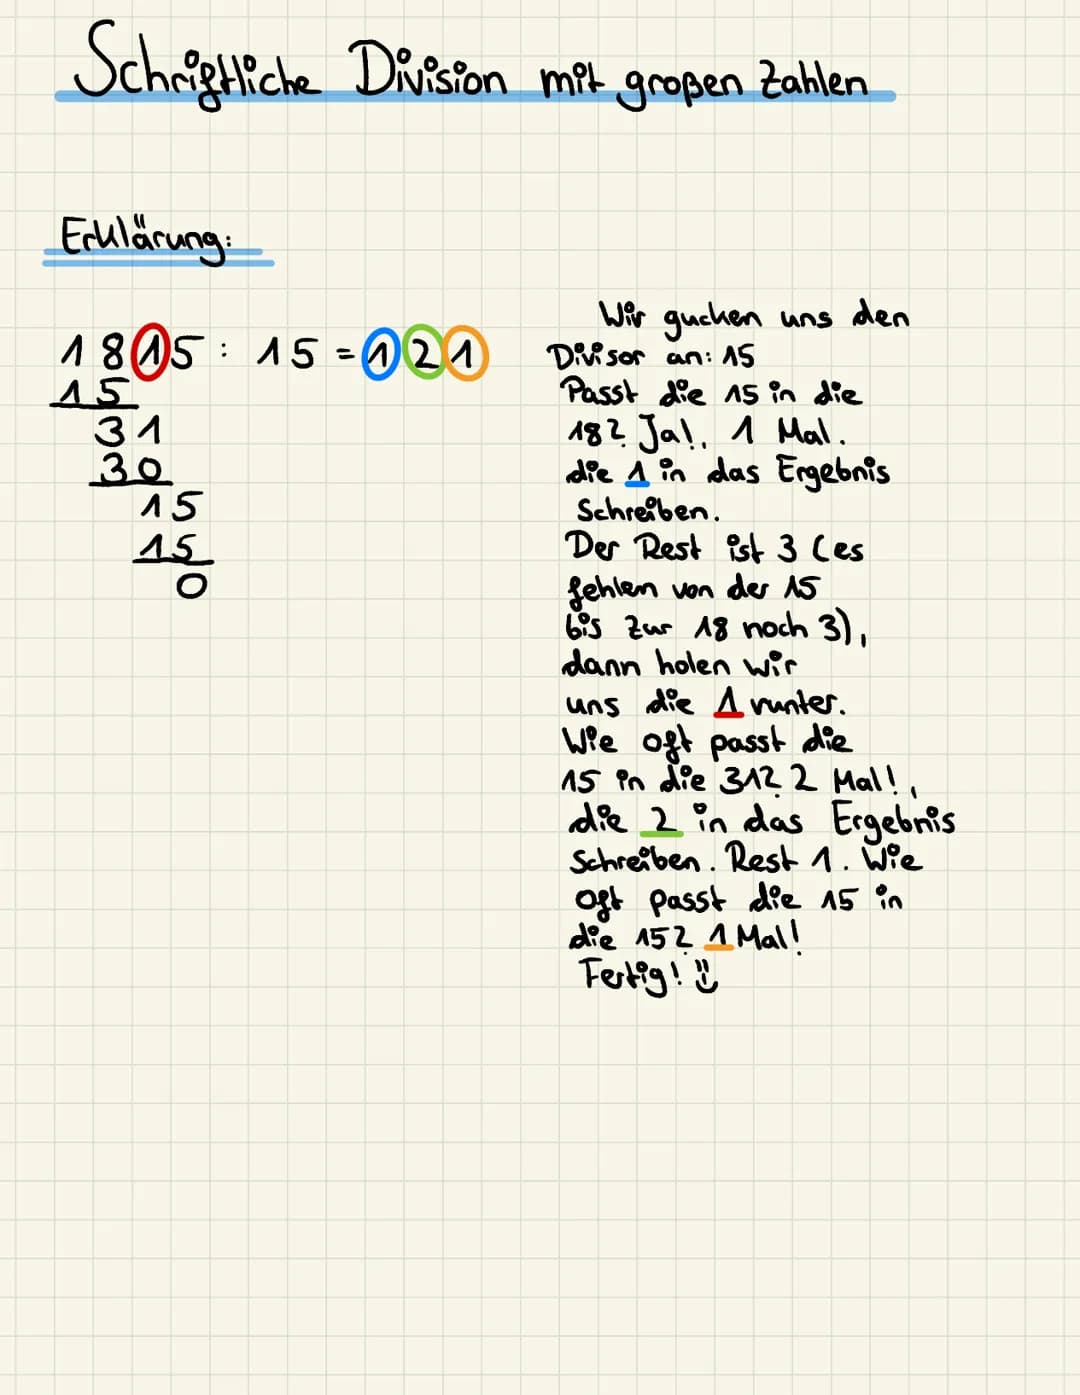 Schriftliche Division mit großen Zahlen
Erklärung:
1815 : 15 = 121
15
31
30
15
15
0
Wir gucken uns den
Divisor an: 15
Passt die 15 in die
18? Ja!, 1 Mal.
die 1 in das Ergebnis
Schreiben.
Der Rest ist 3 (es
fehlen von der 15
bis zur 18 noch 3),
dann holen wir
uns die 1 runter.
Wie oft passt die
15 in die 31? 2 Mal!,
die 2 in das Ergebnis
Schreiben. Rest 1. Wie
oft passt die 15 in
die 15? 1 Mal!
Fertig!